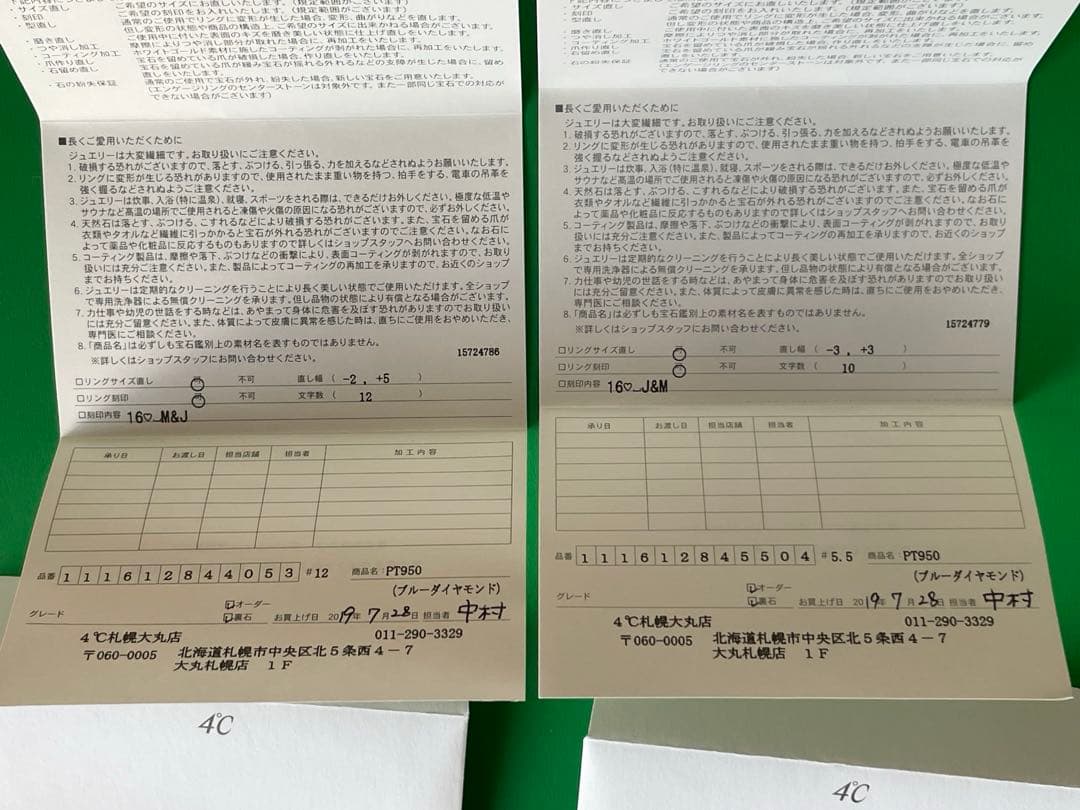 ・サイズ直し
ご希望のサイズにお直しいたします。(規定範囲がございます)
・刻印
ご希望の刻印をお入れいたします。(規定範囲がございます)
・型直し
通常のご使用でリングに変形が生じた場合、変形、曲がりなどを直します。
但し変形の状態や商品の構造上、ご希望のサイズに出来かねる場合がございます。
・磨き直し
ご使用中に付いた表面のキズを磨き美しい状態に仕上げ直しをいたします。
・つや消し加工
摩擦によりつや消し部分が取れた場合に、再加工をいたします。
・コーティング加工
ホワイトゴールド素材に施したコーティングが剥がれた場合に、再加工をいたします。
・爪作り直し
宝石を留めている爪が破損した場合、作り直しをいたします。
・石留め直し
宝石を留めている爪が緩み宝石が揺れる外れるなどの支障が生じた場合に、留め直しをいたします。
・石の紛失保証
通常のご使用で宝石が外れ、紛失した場合、新しい宝石をご用意いたします。
(エンゲージリングのセンターストーンは対象外です。また一部同じ宝石での対応ができない場合がございます)
■長くご愛用いただくために
ジュエリーは大変繊細です。お取り扱いにご注意ください。
1. 破損する恐れがございますので、落とす、ぶつける、引っ張る、力を加えるなどされぬようお願いいたします。
2. リングに変形が生じる恐れがありますので、使用されたまま重い物を持つ、拍手をする、電車の吊革を
強く握るなどされぬようご注意ください。
3. ジュエリーは炊事、入浴(特に温泉)、就寝、スポーツをされる際は、できるだけお外しください。極度な低温や
サウナなど高温の場所でご使用されると凍傷や火傷の原因になる恐れがございますので、必ずお外しください。
4. 天然石は落とす、ぶつける、こすれるなどにより破損する恐れがございます。また、宝石を留める爪が
衣類やタオルなど繊維に引っかかると宝石が外れる恐れがございますのでご注意ください。なお石に
よって薬品や化粧品に反応するものもありますので詳しくはショップスタッフへお問い合わせください。
5. コーティング製品は、摩擦や落下、ぶつけるなどの衝撃により、表面コーティングが剥がれますので、お取り
扱いには充分ご注意ください。また、製品によってコーティングの再加工を承りますので、お近くのショップ
までお持ちください。
6. ジュエリーは定期的なクリーニングを行うことにより長く美しい状態でご使用いただけます。全ショップ
で専用洗浄器による無償クリーニングを承ります。但し品物の状態により有償となる場合がございます。
7. 力仕事や幼児の世話をする時などは、あやまって身体に危害を及ぼす恐れがありますのでお取り扱い
には充分ご留意ください。また、体質によって皮膚に異常を感じた時は、直ちにご使用をおやめいただき、
専門医にご相談ください。
8. 「商品名」は必ずしも宝石鑑別上の素材名を表すものではありません。
※詳しくはショップスタッフにお問い合わせください。
15724786
□リングサイズ直し 可 不可 直し幅 ( -2 , +5 )
□リング刻印 可 不可 文字数 ( 12 )
□刻印内容 16♡_M&J
承り日 お渡し日 担当店舗 担当者 加工内容
品番 111612844053 #12 商品名: PT950
(ブルーダイヤモンド)
グレード
☑オーダー
☑裏石 お買上げ日 2019年7月28日 担当者 中村
4℃札幌大丸店 011-290-3329
〒060-0005 北海道札幌市中央区北5条西4-7
大丸札幌店 1F
4℃
■長くご愛用いただくために
ジュエリーは大変繊細です。お取り扱いにご注意ください。
1. 破損する恐れがございますので、落とす、ぶつける、引っ張る、力を加えるなどされぬようお願いいたします。
2. リングに変形が生じる恐れがありますので、使用されたまま重い物を持つ、拍手をする、電車の吊革を
強く握るなどされぬようご注意ください。
3. ジュエリーは炊事、入浴(特に温泉)、就寝、スポーツをされる際は、できるだけお外しください。極度な低温や
サウナなど高温の場所でご使用されると凍傷や火傷の原因になる恐れがございますので、必ずお外しください。
4. 天然石は落とす、ぶつける、こすれるなどにより破損する恐れがございます。また、宝石を留める爪が
衣類やタオルなど繊維に引っかかると宝石が外れる恐れがございますのでご注意ください。なお石に
よって薬品や化粧品に反応するものもありますので詳しくはショップスタッフへお問い合わせください。
5. コーティング製品は、摩擦や落下、ぶつけるなどの衝撃により、表面コーティングが剥がれますので、お取り
扱いには充分ご注意ください。また、製品によってコーティングの再加工を承りますので、お近くのショップ
までお持ちください。
6. ジュエリーは定期的なクリーニングを行うことにより長く美しい状態でご使用いただけます。全ショップ
で専用洗浄器による無償クリーニングを承ります。但し品物の状態により有償となる場合がございます。
7. 力仕事や幼児の世話をする時などは、あやまって身体に危害を及ぼす恐れがありますのでお取り扱い
には充分ご留意ください。また、体質によって皮膚に異常を感じた時は、直ちにご使用をおやめいただき、
専門医にご相談ください。
8. 「商品名」は必ずしも宝石鑑別上の素材名を表すものではありません。
※詳しくはショップスタッフにお問い合わせください。
15724779
□リングサイズ直し 可 不可 直し幅 ( -3 , +3 )
□リング刻印 可 不可 文字数 ( 10 )
□刻印内容 16♡_J&M
承り日 お渡し日 担当店舗 担当者 加工内容
品番 111612845504 #5.5 商品名: PT950
(ブルーダイヤモンド)
グレード
☑オーダー
☑裏石 お買上げ日 2019年7月28日 担当者 中村
4℃札幌大丸店 011-290-3329
〒060-0005 北海道札幌市中央区北5条西4-7
大丸札幌店 1F
4℃